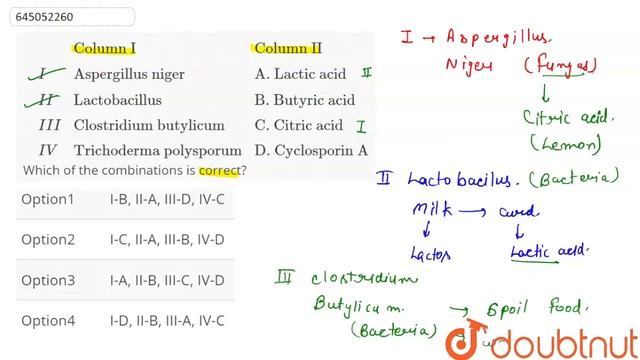 645052260
Column I Column II
I Aspergillus niger A. Lactic acid II
II Lactobacillus B. Butyric acid
III Clostridium butylicum C. Citric acid I
IV Trichoderma polysporum D. Cyclosporin A
Which of the combinations is correct?
Option1 I-B, II-A, III-D, IV-C
Option2 I-C, II-A, III-B, IV-D
Option3 I-A, II-B, III-C, IV-D
Option4 I-D, II-B, III-A, IV-C
I → Aspergillus.
Niger (fungus)
↓
Citric acid.
(Lemon)
II Lactobacilus. (Bacteria)
Milk → curd.
↓ ↓
Lactos Lactic acid.
III clostridium
Butylicum. → Spoil food.
(Bacteria) →
doubtnut